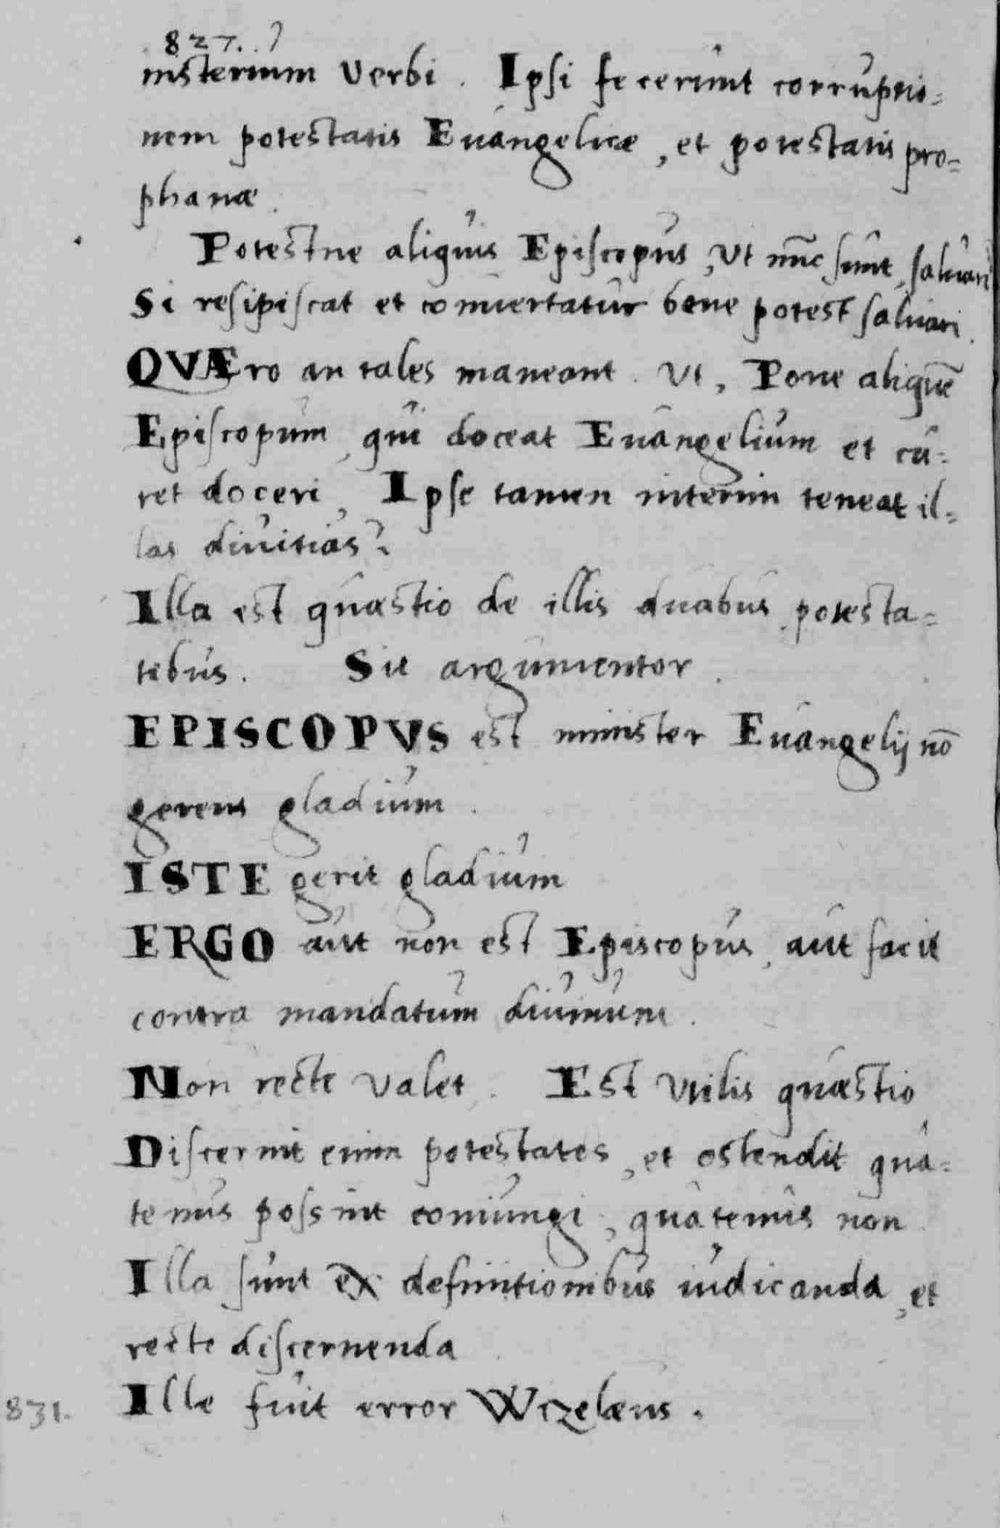 827.
nisterium Verbi. Ipsi fecerunt corruptio=
nem potestatis Euangelicæ, et potestatis pro=
phanæ.
Potestne aliquis Episcopus, Ut nūc sunt, saluari
Si resipiscat et conuertatur bene potest saluari.
QVÆro an tales maneant. Ut, Pone aliquē
Episcopum, qui doceat Euangelium et cu=
ret doceri, Ipse tamen interim teneat il=
las diuitias?
Illa est quæstio de illis duabus potesta=
tebus. Sic argumentor.
EPISCOPVS est minister Euangelij nō
gerens gladium.
ISTE gerit gladium
ERGO aut non est Episcopus, aut facit
contra mandatum diuinum.
Non recte valet. Est Utilis quæstio
Discernit enim potestates, et ostendit qua=
tenus possint coniungi, quatenus non
Illa sunt ex definitionibus iudicanda, et
recte discernenda.
831. Ille fuit error Wizelæus.